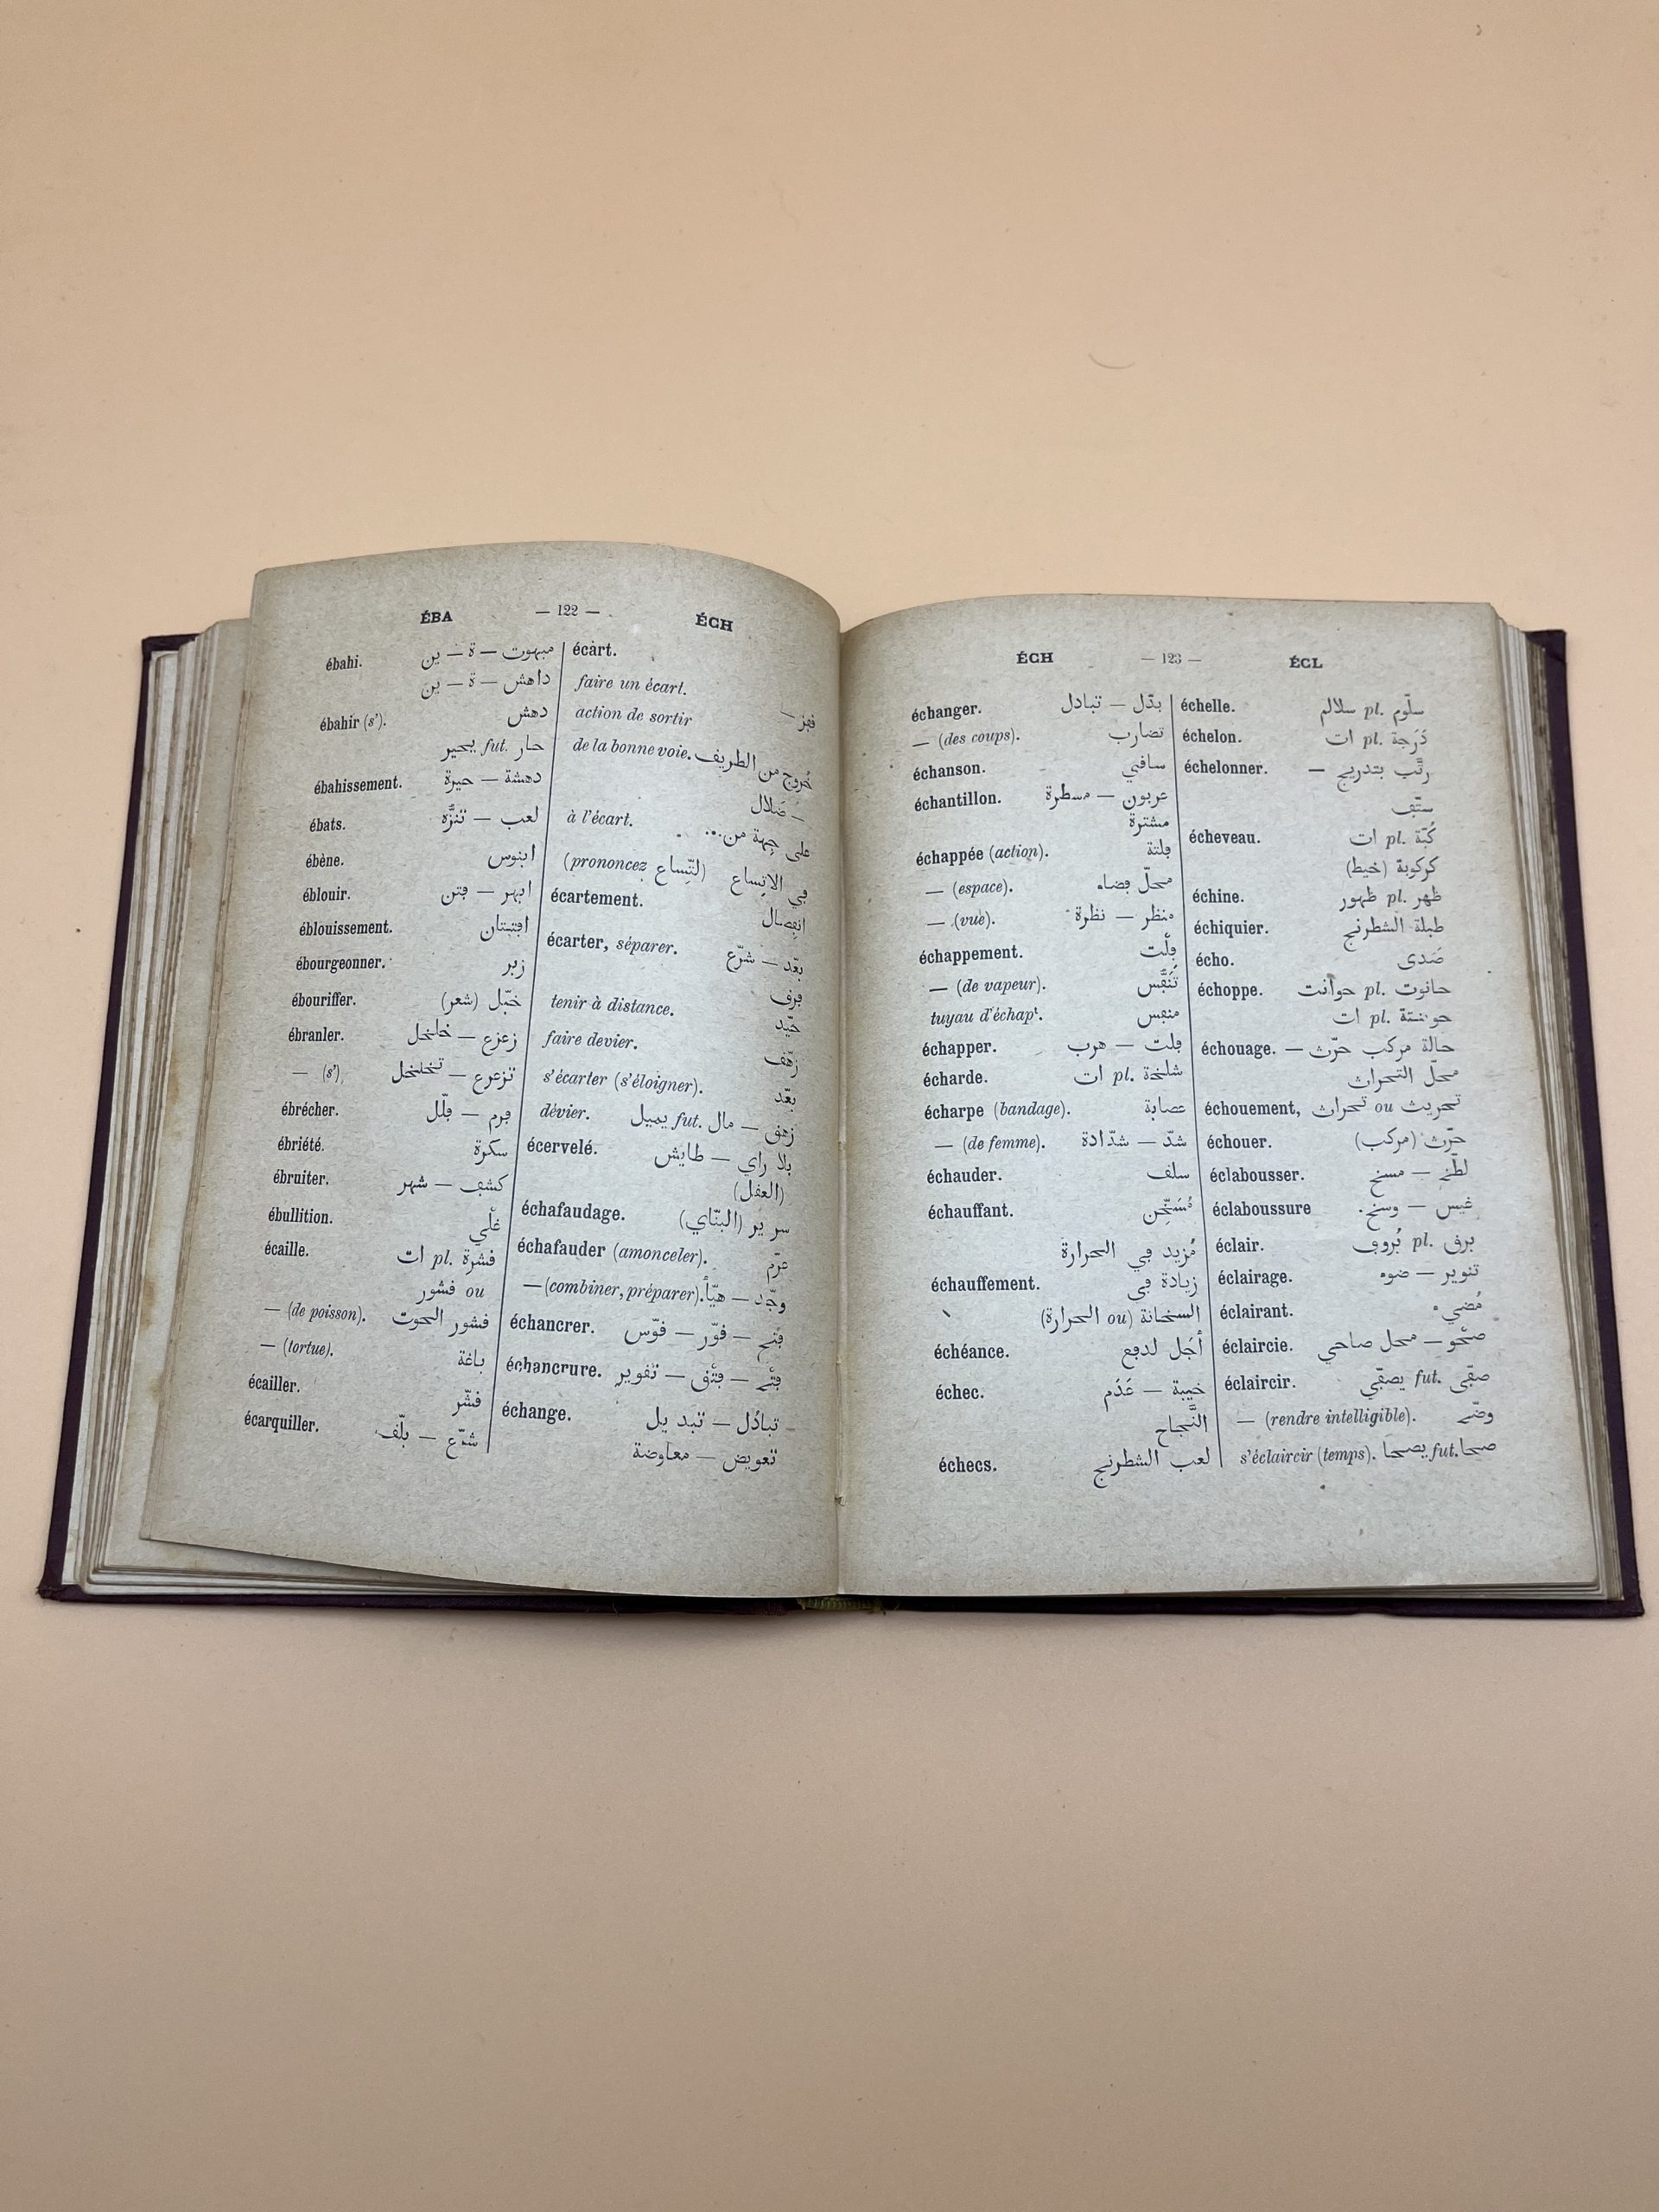 ÉBA — 122 — ÉCH
ébahi. مبهوت — ة — ين
داهش — ة — ين
ébahir (s'). دهش
حار fut. يحير
ébahissement. دهشة — حيرة
ébats. لعب — تنزّه
ébène. ابنوس
éblouir. ابهر — ڢتن
éblouissement.
ébourgeonner. زبر
ébouriffer. خبّل (شعر)
ébranler. زعزع — خلخل
— (s') تزعزع — تخلخل
ébrécher. ڢرم — ڢلّل
ébriété. سكرة
ébruiter. كشڢ — شهر
ébullition. غلْي
écaille. فشرة pl. ات
ou فشور
— (de poisson). فشور الحوت
— (tortue). باغة
écailler. فشّر
écarquiller.
écart.
faire un écart. فبز —
action de sortir
de la bonne voie. خُروج من الطريف
— ضَلال
à l'écart. على جِهة من...
(prononcez لتّساع) ڢي الاتِساع
écartement. انڢِصال
écarter, séparer. بعّد — شرّع
ڢرف
tenir à distance. حيّد
faire devier. زهّف
s'écarter (s'éloigner). بعّد
dévier. زهڧ — مال fut. يميل
écervelé. بلا راي — طايش
(العفل)
échafaudage. سرير (البنّاي)
échafauder (amonceler). عرّم
— (combiner, préparer). وجّد — هيّأ
échancrer. ڢتح — فوّر — فوّس
échancrure. ڢتْح — ڢتْڧ — تفوير
échange. تبادُل — تبديل
تعويض — معاوضة
ÉCH — 123 — ÉCL
échanger. بدّل — تبادل
— (des coups). تضارب
échanson. سافي
échantillon. عربون — مسطرة
مشترة
échappée (action). ڢلتة
— (espace). محلّ ڢضاء
— (vue). منظر — نظرة
échappement. ڢلْت
— (de vapeur). تَنَڢُّس
tuyau d'échapt. منڢس
échapper. ڢلت — هرب
écharde. شلخة pl. ات
écharpe (bandage). عصابة
— (de femme). شدّ — شدّادة
échauder. سلف
échauffant. مُسَخِّن
مُزيد ڢي الحرارة
échauffement. زيادة ڢي
السخانة (ou الحرارة)
échéance. أجَل لدڢع
échec. خيبة — عَدَم
النَّجاح
échecs. لعب الشطرنج
échelle. سلّوم pl. سلالم
échelon. دَرَجة pl. ات
échelonner. رتَّب بتدريج —
ستّڢ
écheveau. كُبّة pl. ات
كركوبة (خيط)
échine. ظهر pl. ظهور
échiquier. طبلة الشطرنج
écho. صَدى
échoppe. حانوت pl. حوانت
pl. ات
échouage. حالة مركب حرّث —
محلّ التحراث
échouement, تحريث ou تحراث
échouer. حرّث (مركب)
éclabousser. لطّخ — مسخ
éclaboussure غيس — وسخ.
éclair. برف pl. بُروف
éclairage. تنوير — ضوء
éclairant. مُضيء
éclaircie. صحْو — محل صاحي
éclaircir. صڢّى fut. يصڢّي
— (rendre intelligible). وضّح
s'éclaircir (temps). صحا fut. يصحا